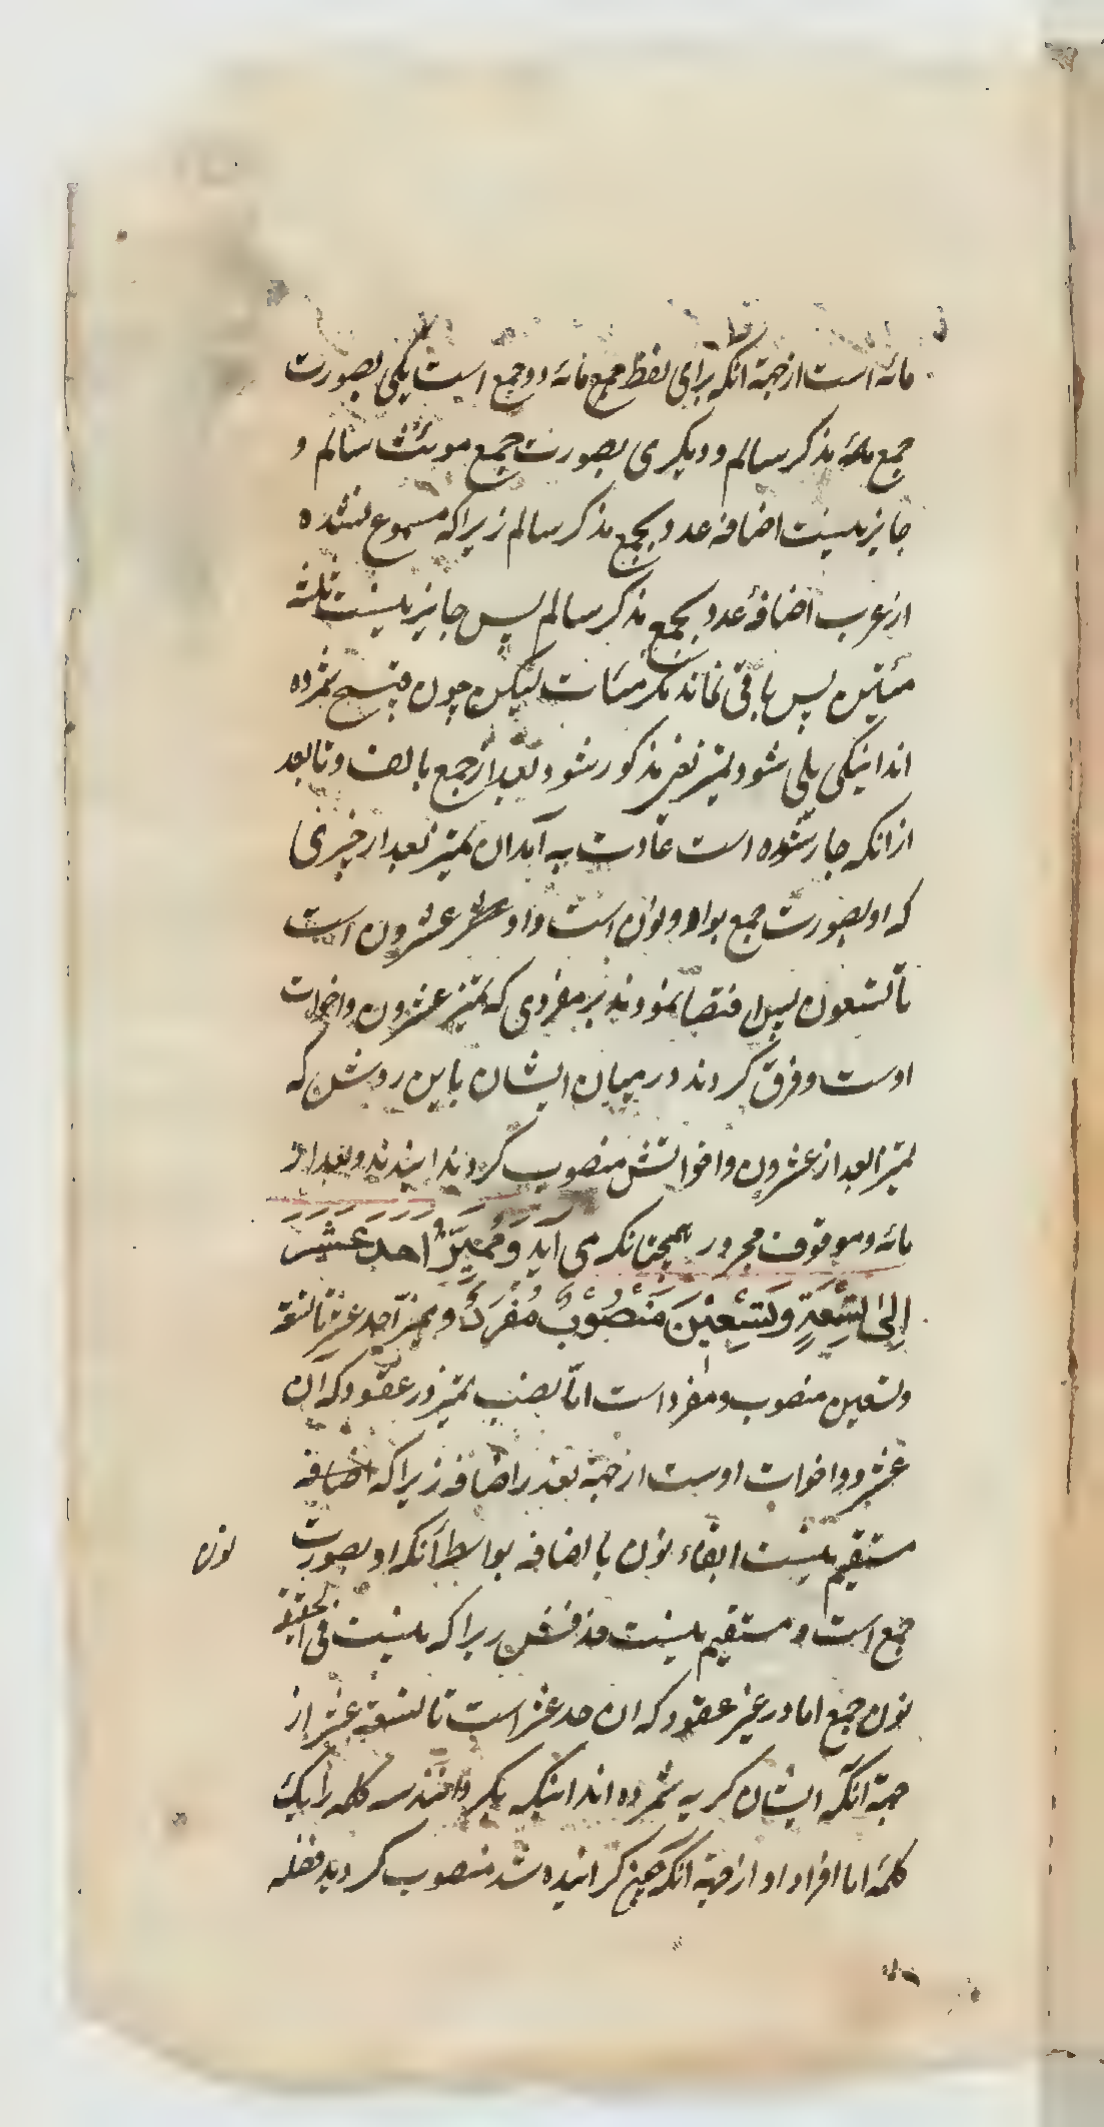 مائه است از جهة انکه برای لفظ جمع مائه دو جمع است یکی بصورت
جمع مذکر سالم و دیکری بصورت جمع مونث سالم و
جایز نیست اضافه عدد بجمع مذکر سالم زیرا که مسموع نشده
از عرب اضافهٔ عدد بجمع مذکر سالم پس جایز نیست ثلثة
مئین پس باقی نماند مکر مئات لیکن چون قبیح شمرده
اند اینکی یلی شود تمیز مذکور شود بعد از جمع بالف و تا بعد
از انکه جار شوده است عادت به آمدن تمیز بعد از چیزی
که او بصورت جمع بواو و نون است و او عشرون است
تا تسعون پس اقتصار نمودند بر مفردی که تمیز عشرون و اخوات
اوست و فرق کردند در میان ایشان باین روش که
تمیز بعد از عشرون و اخواتش منصوب کردیدند و بعد از
مائه و موقوف مجرور همچنانکه می آید وَمُمَیِّزُ احد عَشَرَ
اِلیٰ تِسْعَةٍ وَتِسْعِیْنَ مَنْصُوْبٌ مُفْرَدٌ و ممیز احد عشر تا تسعة
و تسعین منصوب و مفرد است اما نصب تمیز در عقود که آن
عشرون و اخوات اوست از جهة تعذر اضافه زیرا که اضافه
مستقیم نیست ابقاء نون با اضافه بواسطه آنکه او بصورت
نون
جمع است و مستقیم نیست حذفش زیرا که نیست فی الحقیقه
نون جمع اما در غیر عقود که ان احد عشر است تا تسعة عشر از
جهة آنکه ایشان کریه شمرده اند اینکه بکردانند سه کلمه را یک
کلمه اما افراد او از جهة انکه چون کرانیده شد منصوب کردید فضله